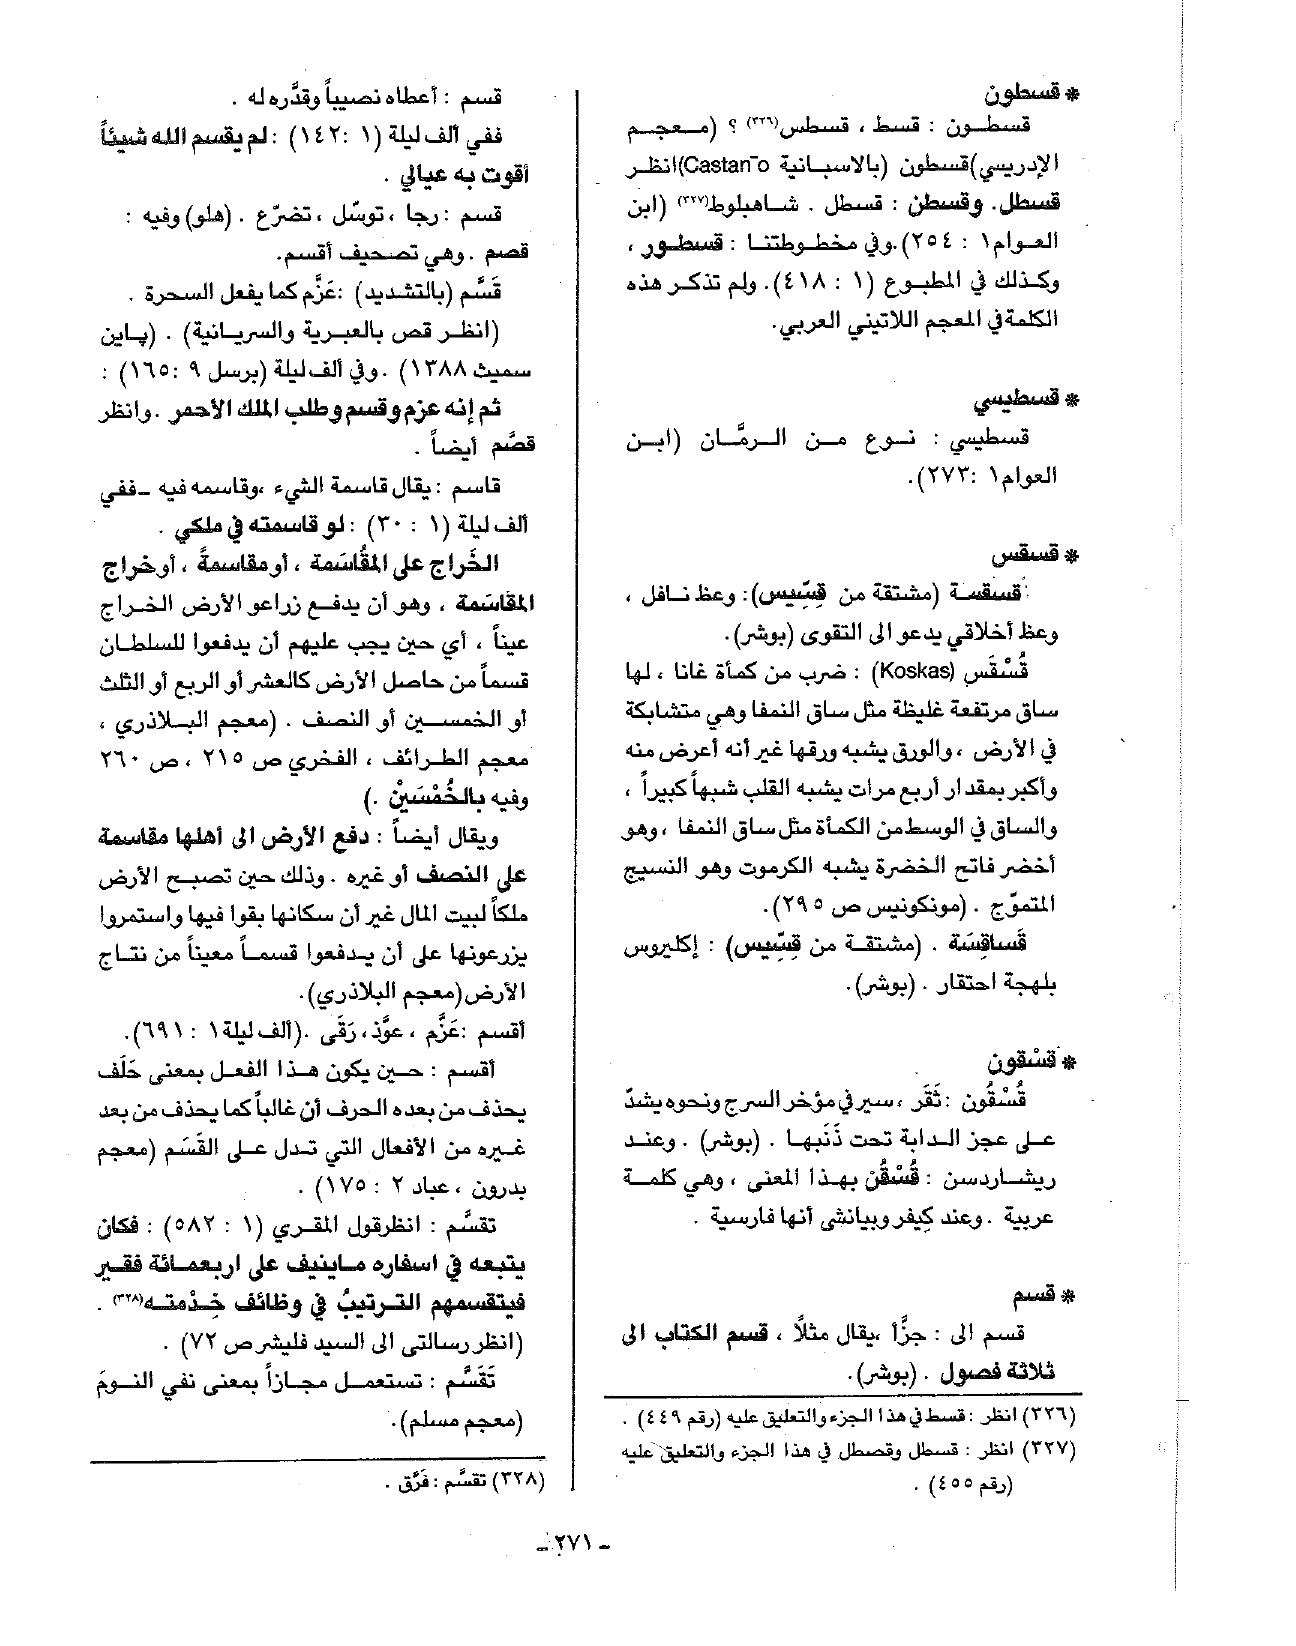 * قسطون
قسطـون : قسط ، قسطس(٣٢٦) ؟ (مـعجـم
الإدريسي)قسطون (بالاسبانية Castan~o)انظـر
قسطل. وقسطن : قسطل . شـاهبلوط(٣٢٧) (ابن
العـوام١ : ٢٥٤).وفي مخطوطتنا : قسطـور ،
وكـذلك في المطبـوع (١ : ٤١٨). ولم تذكـر هذه
الكلمةفي المعجم اللاتيني العربي.
* قسطيسي
قسطيسي : نـوع مـن الـرمَّـان (ابـن
العوام١ :٢٧٣).
* قسقس
قسقسـة (مشتقة من قِسِّيس): وعظ نـافل ،
وعظ أخلاقي يدعو الى التقوى (بوشر).
قُسْقَس (Koskas) : ضرب من كمأة غانا ، لها
ساق مرتفعة غليظة مثل ساق النمفا وهي متشابكة
في الأرض ، والورق يشبه ورقها غير أنه أعرض منه
وأكبر بمقدار أربع مرات يشبه القلب شبهاً كبيراً ،
والساق في الوسط من الكمأة مثل ساق النمفا ، وهو
أخضر فاتح الخضرة يشبه الكرموت وهو النسيج
المتموّج . (مونكونيس ص ٢٩٥).
قَساقِسَة . (مشتقـة من قِسِّيس) : إكليروس
بلهجة احتقار . (بوشر).
* قسْقون
قُسْقُون : ثَفَر ، سير في مؤخر السرج ونحوه يشدّ
علـى عجز الـدابة تحت ذَنَبهـا . (بوشر) . وعنـد
ريشـاردسن : قُسْقُن بهـذا المعنى ، وهي كلمـة
عربية . وعند كيفر وبيانشي أنها فارسية .
* قسم
قسم الى : جزَّأ ،يقال مثلاً ، قسم الكتاب الى
ثلاثة فصول . (بوشر).
(٣٢٦) انظر : قسط في هذا الجزء والتعليق عليه (رقم ٤٤٩) .
(٣٢٧) انظر : قسطل وقصطل في هذا الجزء والتعليق عليه
(رقم ٤٥٥) .
قسم : أعطاه نصيباً وقدَّره له .
ففي ألف ليلة (١ :١٤٢) : لم يقسم الله شيئاً
أقوت به عيالي .
قسم : رجا ، توسّل ، تضرّع . (هلو) وفيه :
قصم . وهي تصحيف أقسم.
قَسَّم (بالتشديد) :عَزَّم كما يفعل السحرة .
(انظـر قص بالعبرية والسريـانية) . (پـاين
سميث ١٣٨٨) . وفي ألف ليلة (برسل ٩ :١٦٥) :
ثم إنه عزم وقسم وطلب الملك الأحمر . وانظر
قصَّم أيضاً .
قاسم : يقال قاسمة الشيء ،وقاسمه فيه ـ ففي
ألف ليلة (١ : ٣٠) : لو قاسمته في ملكي .
الخَراج على المُقاسَمة ، أو مقاسمةً ، أو خراج
المقاسَمة ، وهو أن يدفـع زراعو الأرض الخـراج
عيناً ، أي حين يجب عليهم أن يدفعوا للسلطـان
قسمـاً من حاصل الأرض كالعشر أو الربع أو الثلث
أو الخمسـين أو النصف . (معجم البـلاذري ،
معجم الطـرائف ، الفخري ص ٢١٥ ، ص ٢٦٠
وفيه بالخُمْسَيْن .)
ويقال أيضاً : دفع الأرض الى أهلها مقاسمة
على النصف أو غيره . وذلك حين تصبـح الأرض
ملكاً لبيت المال غير أن سكانها بقوا فيها واستمروا
يزرعونها على أن يـدفعوا قسمـاً معيناً من نتـاج
الأرض(معجم البلاذري).
أقسم :عَزَّم ، عوَّذ ، رَقَى .(ألف ليلة١ : ٦٩١).
أقسم : حـين يكون هـذا الفعـل بمعنى حَلَف
يحذف من بعده الحرف أن غالباً كما يحذف من بعد
غـيره من الأفعال التي تـدل علـى القَسَم (معجم
بدرون ، عباد ٢ : ١٧٥) .
تقسَّم : انظرقول المقري (١ : ٥٨٢) : فكان
يتبعه في اسفاره مـاينيف على اربعمـائة فقـير
فيتقسمهم الترتيبُ في وظائف خِدْمته(٣٢٨) .
(انظر رسالتي الى السيد فليشر ص ٧٢) .
تَقَسَّم : تستعمـل مجـازاً بمعنى نفي النـومَ
(معجم مسلم).
(٣٢٨) تقسَّم : فَرَّق .
ـ ٢٧١ ـ